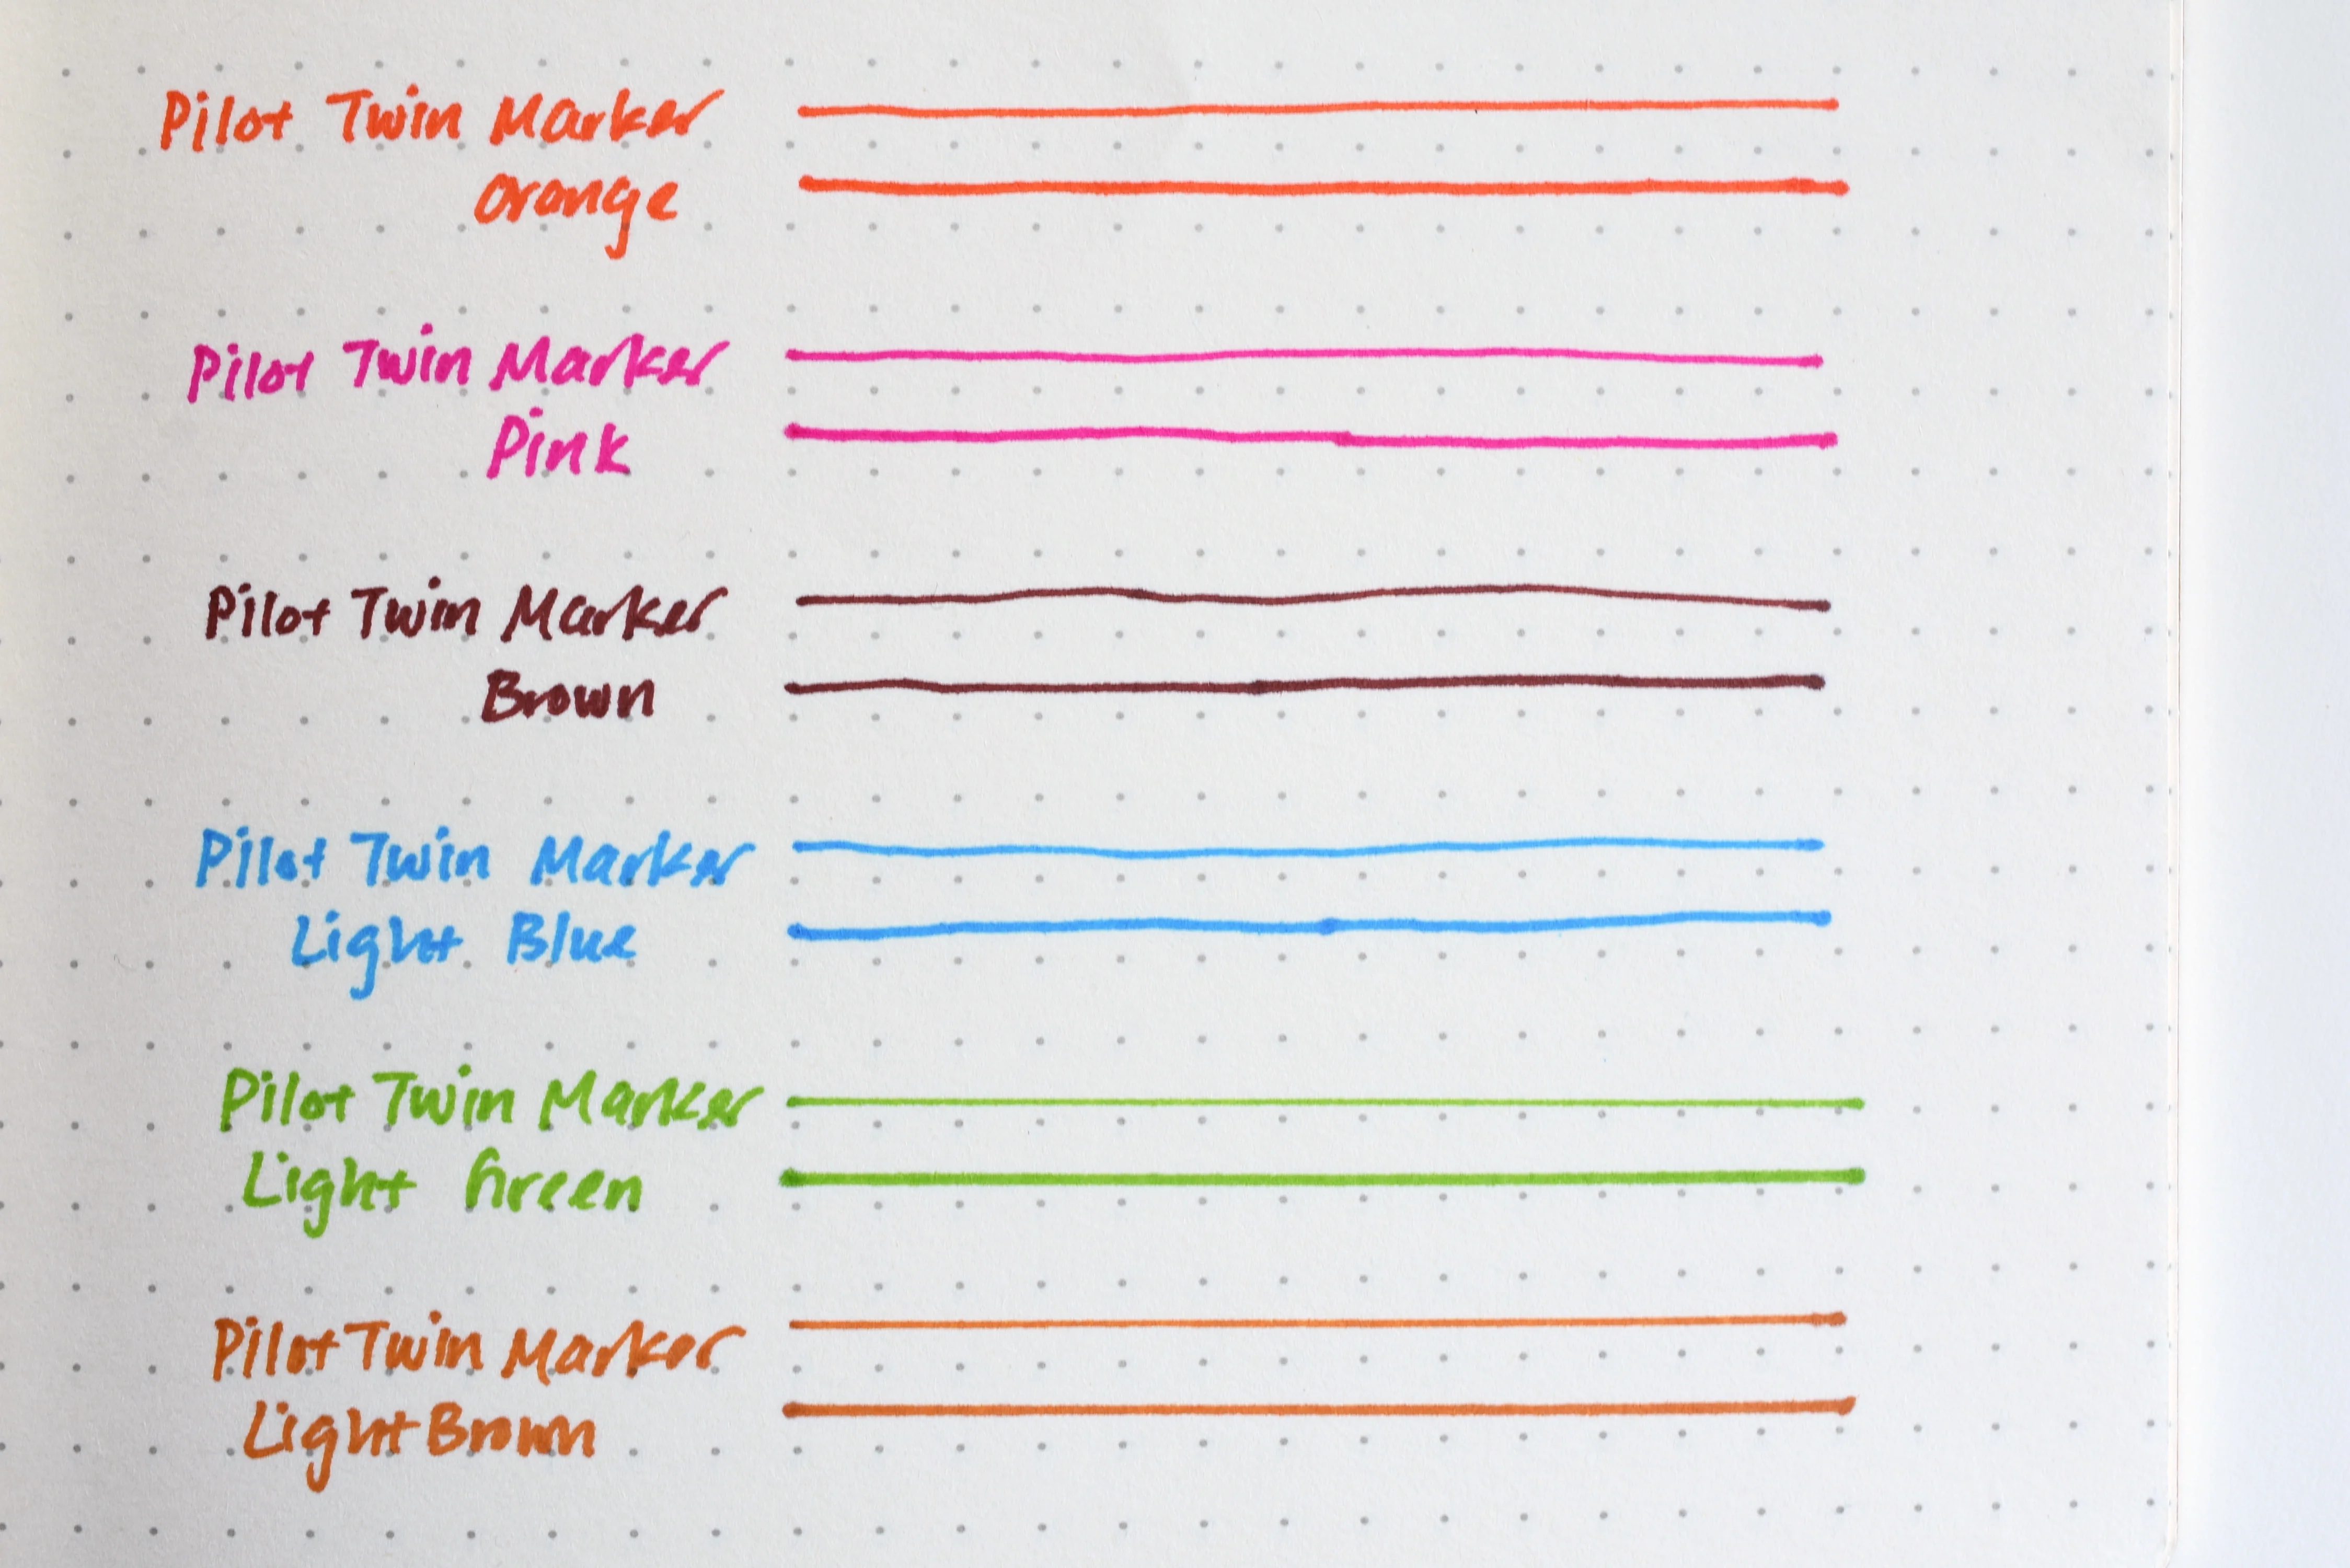 Pilot Twin Marker
Orange
Pilot Twin Marker
Pink
Pilot Twin Marker
Brown
Pilot Twin Marker
Light Blue
Pilot Twin Marker
Light Green
Pilot Twin Marker
Light Brown